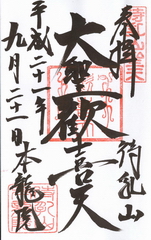 奉拝
待乳山
大聖歡喜天
平成二十一年
九月二十一日
本龍院